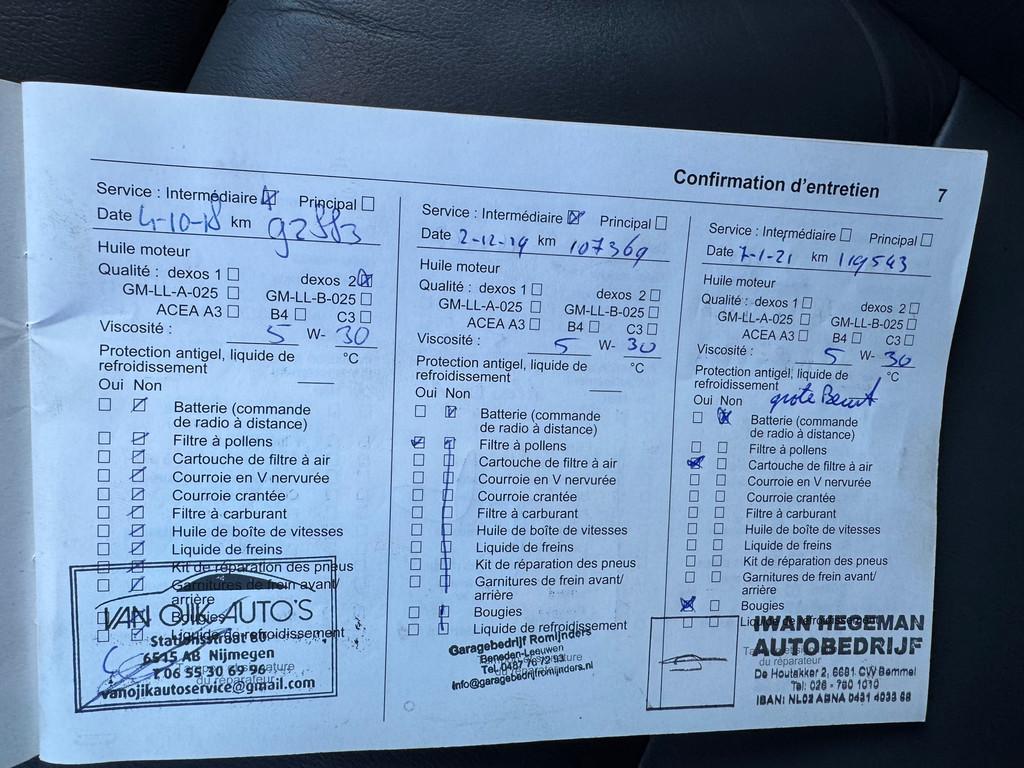 Confirmation d'entretien 7
Service : Intermédiaire Principal
Date 4-10-18 km 92883
Huile moteur
Qualité : dexos 1 dexos 2
GM-LL-A-025 GM-LL-B-025
ACEA A3 B4 C3
Viscosité : 5 W- 30
Protection antigel, liquide de °C
refroidissement
Oui Non
Batterie (commande
de radio à distance)
Filtre à pollens
Cartouche de filtre à air
Courroie en V nervurée
Courroie crantée
Filtre à carburant
Huile de boîte de vitesses
Liquide de freins
Kit de réparation des pneus
Garnitures de frein avant/
arrière
Bougies
Liquide de refroidissement
VAN OJIK AUTO'S
Stationsstraat 80
6515 AB Nijmegen
T.06 55 30 67 96
vanojikautoservice@gmail.com
Service : Intermédiaire Principal
Date 2-12-19 km 107369
Huile moteur
Qualité : dexos 1 dexos 2
GM-LL-A-025 GM-LL-B-025
ACEA A3 B4 C3
Viscosité : 5 W- 30
Protection antigel, liquide de °C
refroidissement
Oui Non
Batterie (commande
de radio à distance)
Filtre à pollens
Cartouche de filtre à air
Courroie en V nervurée
Courroie crantée
Filtre à carburant
Huile de boîte de vitesses
Liquide de freins
Kit de réparation des pneus
Garnitures de frein avant/
arrière
Bougies
Liquide de refroidissement
Garagebedrijf Romijnders
Beneden-Leeuwen
Tel. 0487 76 72 93
info@garagebedrijfromijnders.nl
Service : Intermédiaire Principal
Date 7-1-21 km 119543
Huile moteur
Qualité : dexos 1 dexos 2
GM-LL-A-025 GM-LL-B-025
ACEA A3 B4 C3
Viscosité : 5 W- 30
Protection antigel, liquide de °C
refroidissement grote Beurt
Oui Non
Batterie (commande
de radio à distance)
Filtre à pollens
Cartouche de filtre à air
Courroie en V nervurée
Courroie crantée
Filtre à carburant
Huile de boîte de vitesses
Liquide de freins
Kit de réparation des pneus
Garnitures de frein avant/
arrière
Bougies
Liquide de refroidissement
du réparateur
IWAN HEGEMAN
AUTOBEDRIJF
De Houtakker 2, 6681 CW Bemmel
Tel: 026 - 760 1010
IBAN: NL02 ABNA 0431 4033 68